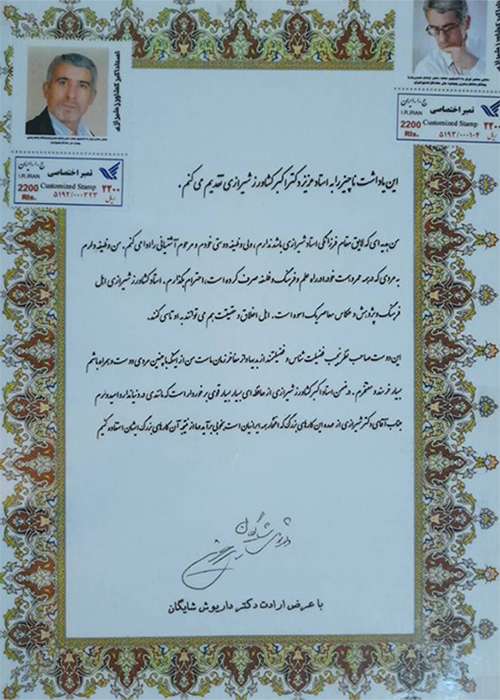 استاد اکبر کشاورز شیرازی
ج.ا. ایران
I.R.IRAN
تمبر اختصاصی
Customized Stamp
2200
Rls.
۲۲۰۰
ریال
۵۱۹۲/۰۰۰۳۲۳
ج.ا. ایران
I.R.IRAN
تمبر اختصاصی
Customized Stamp
2200
Rls.
۲۲۰۰
ریال
۵۱۹۳/۰۰۰۱۰۴
این یادداشت ناچیز را به استاد عزیز دکتر اکبر کشاورز شیرازی تقدیم می کنم.
من هدیه ای که لایق مقام فرزانگی استاد شیرازی باشد ندارم، ولی وظیفه دوستی خودم و مرحوم آشتیانی را ادا می کنم. من وظیفه دارم
به مردی که همه عمر و همت خود را در راه علم و فرهنگ و فلسفه صرف کرده است، احترام بگذارم. استاد کشاورز شیرازی اهل
فرهنگ و پژوهش و عکاس معاصر یک اسوه است. اهل اخلاق و حقیقت هم می توانند به او تاسی کنند.
این دوست صاحب نظر نجیب فضیلت شناس و فضیلتمند از بدیها و از مفاخر زمان ماست من از اینکه با چنین مردی دوست و همراه باشم
بسیار خرسند و مفتخرم. در ضمن استاد اکبر کشاورز شیرازی از حافظه ای بسیار بسیار قوی برخوردار است که مانندی در دنیا ندارد امیدوارم
جناب آقای دکتر شیرازی از عهده این کارهای بزرگ که افتخار همه ایرانیان است بخوبی برآید و ما از نتیجه آن کارهای بزرگ ایشان استفاده کنیم
داریوش شایگان
با عرض ارادت دکتر داریوش شایگان